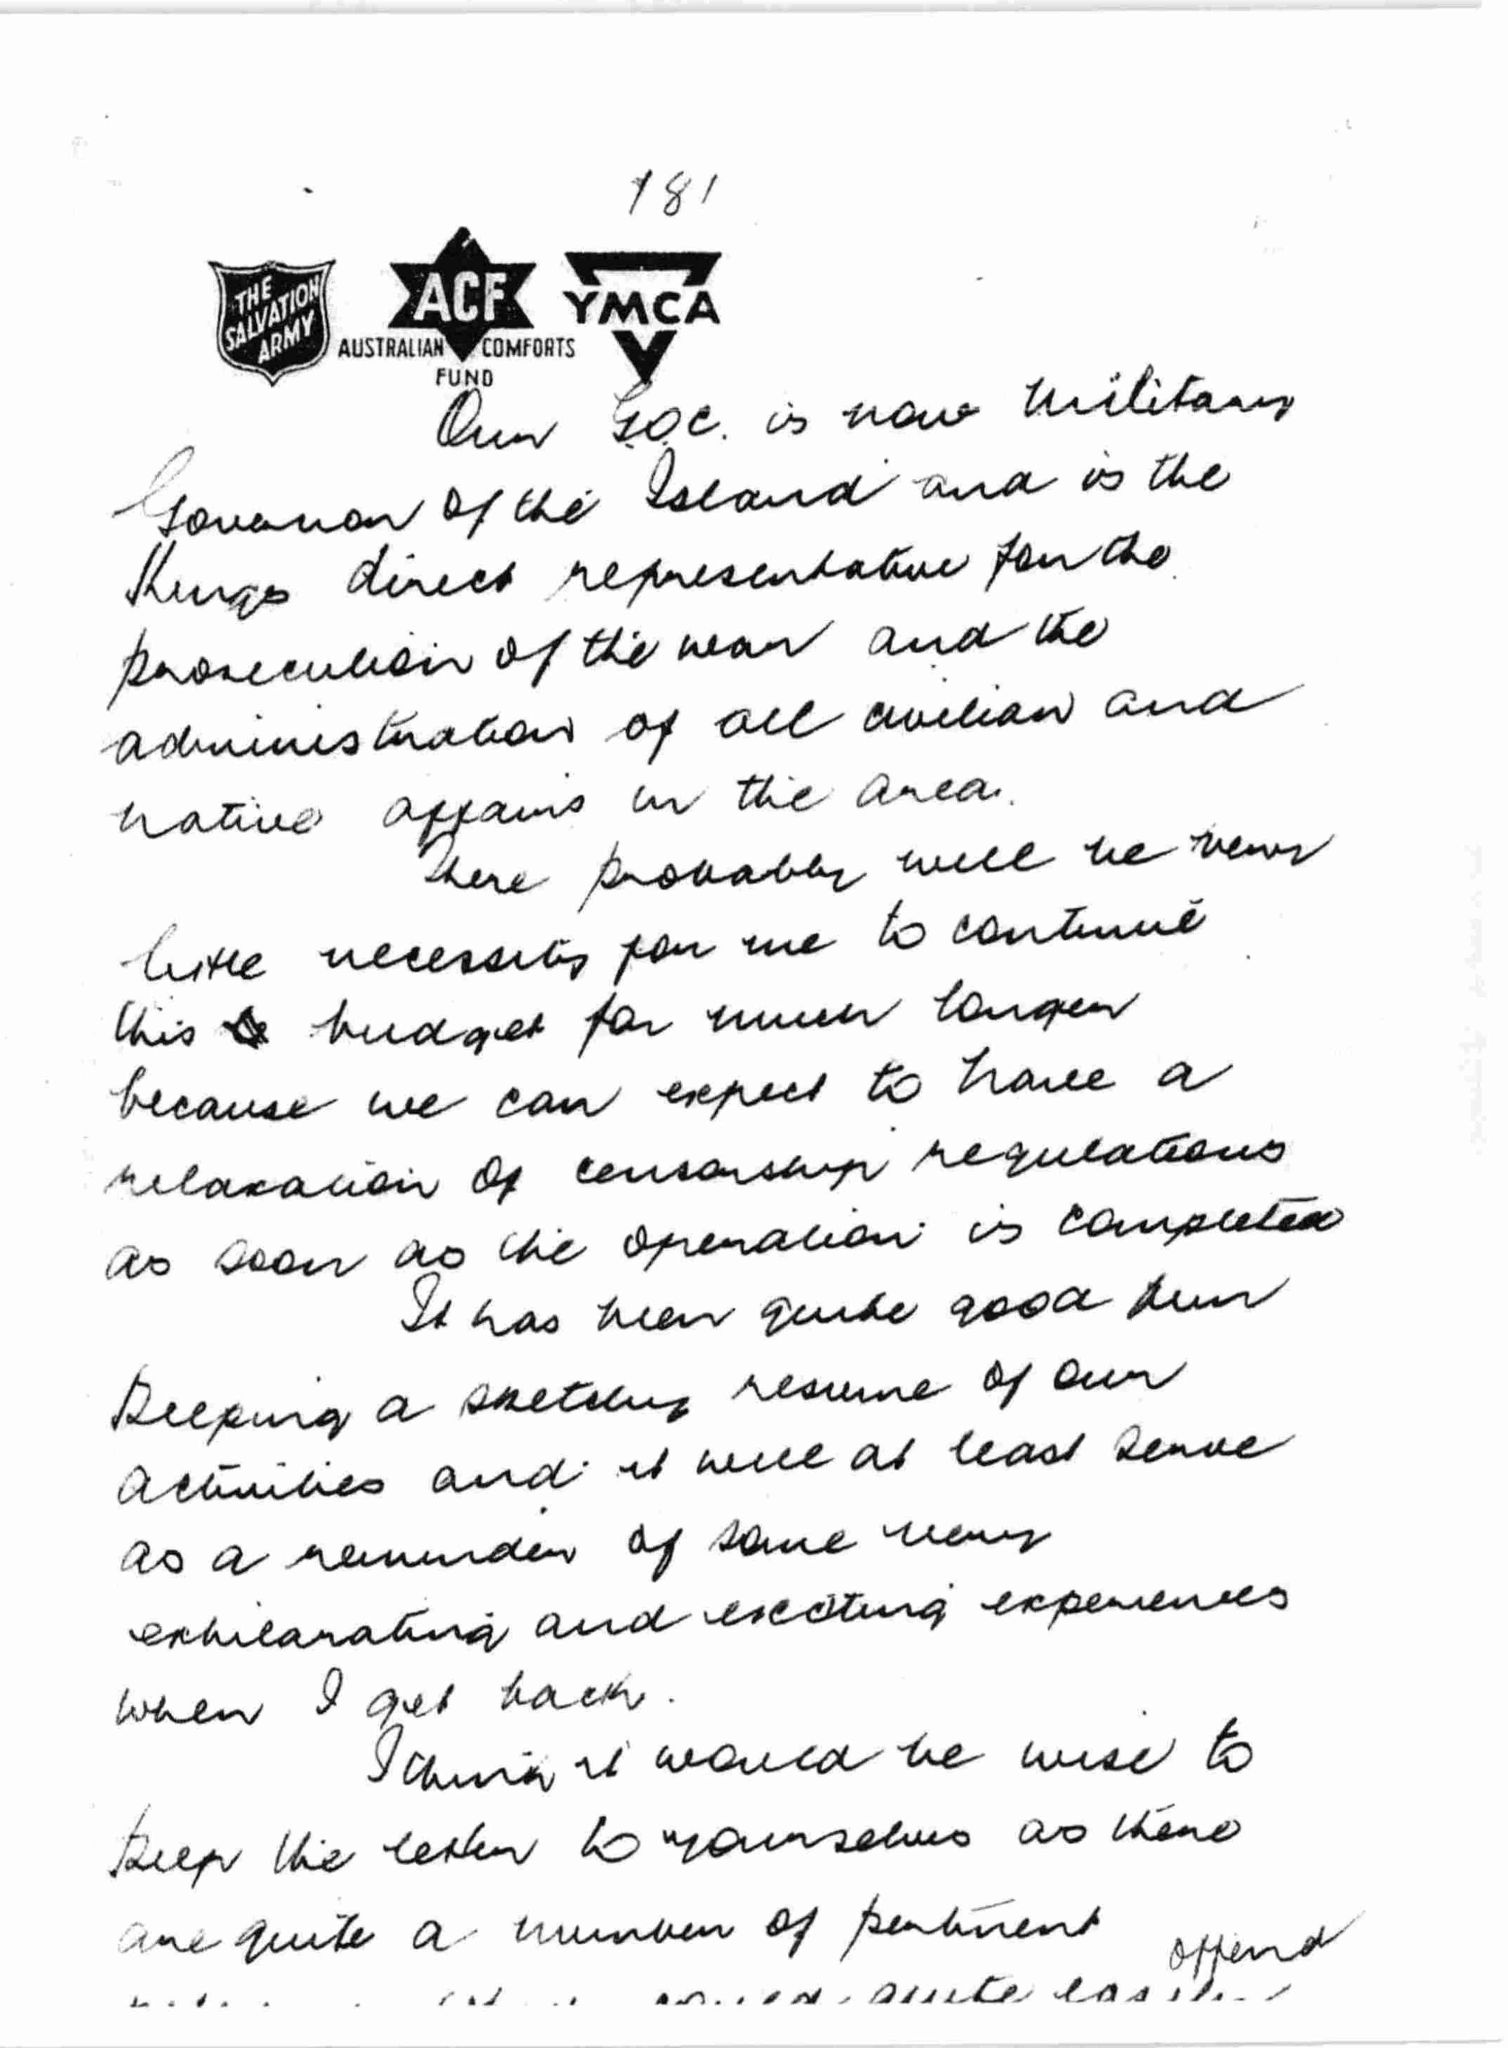 181
THE
SALVATION
ARMY
ACF
AUSTRALIAN COMFORTS
FUND
YMCA
Our G.O.C. is now Military
Governor of the Island and is the
Kings direct representative for the
prosecution of the war and the
administration of all civilian and
native affairs in the area.
There probably will be very
little necessity for me to continue
this budget for much longer
because we can expect to have a
relaxation of censorship regulations
as soon as the operation is completed
It has been quite good fun
keeping a sketchy resume of our
activities and it will at least serve
as a reminder of some very
exhilarating and exciting experiences
when I get back.
I think it would be wise to
keep the letter to yourselves as there
are quite a number of pertinent
offend
could quite easily